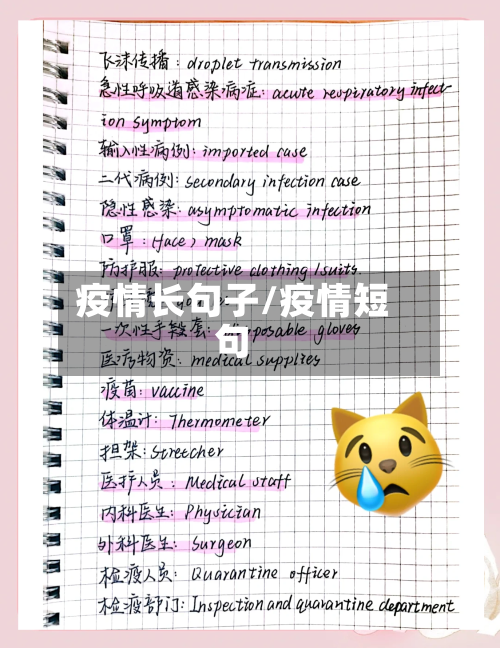 飞沫传播：droplet transmission
急性呼吸道感染病症：acute respiratory infect
ion symptom
输入性病例：imported case
二代病例：secondary infection case
隐性感染：asymptomatic infection
口罩：(face) mask
防护服：protective clothing /suits.
疫情长句子/疫情短
句
一次性手套：disposable gloves
医疗物资：medical supplies
疫苗：vaccine
体温计：Thermometer
担架：Stretcher
医护人员：Medical staff
内科医生：Physician
外科医生：Surgeon
检疫人员：Quarantine officer
检疫部门：Inspection and quarantine department